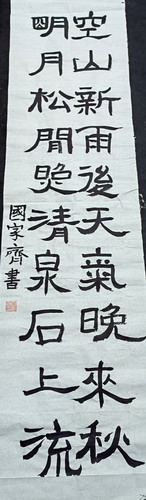 空山新雨後天氣晚來秋
明月松間照清泉石上流
國家齊書